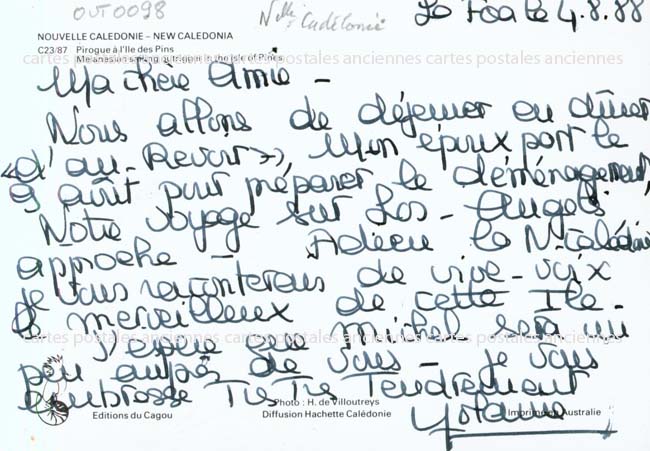 OUT0098
Nlle Calédonie
La Foa le 4.8.88
NOUVELLE CALEDONIE – NEW CALEDONIA
C23/87 Pirogue à l'Ile des Pins
Melanesian sailing outrigger in the Isle of Pines
cartes postales anciennes cartes postales anciennes cartes postales anciennes
Ma chère Amie –
Nous allons de déjeuner en dîner
« d'au-Revoir », Mon époux part le
9 août pour préparer le déménagement,
Notre voyage sur Los-Angeles
approche – Adieu la N-Calédonie
je vous raconterais de vive-voix
le merveilleux de cette Ile –
cartes postales anciennes cartes postales anciennes cartes postales anciennes
J'espère que Michel sera un
peu auprès de vous – je vous
embrasse Très Très Tendrement
Photo : H. de Villoutreys
Editions du Cagou
Diffusion Hachette Calédonie
Imprimé en Australie
Yolande